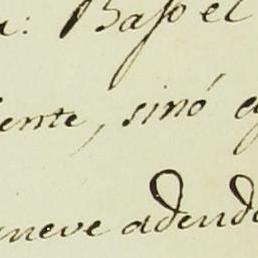 a: Baſo el
ente, sinó e
neve adend